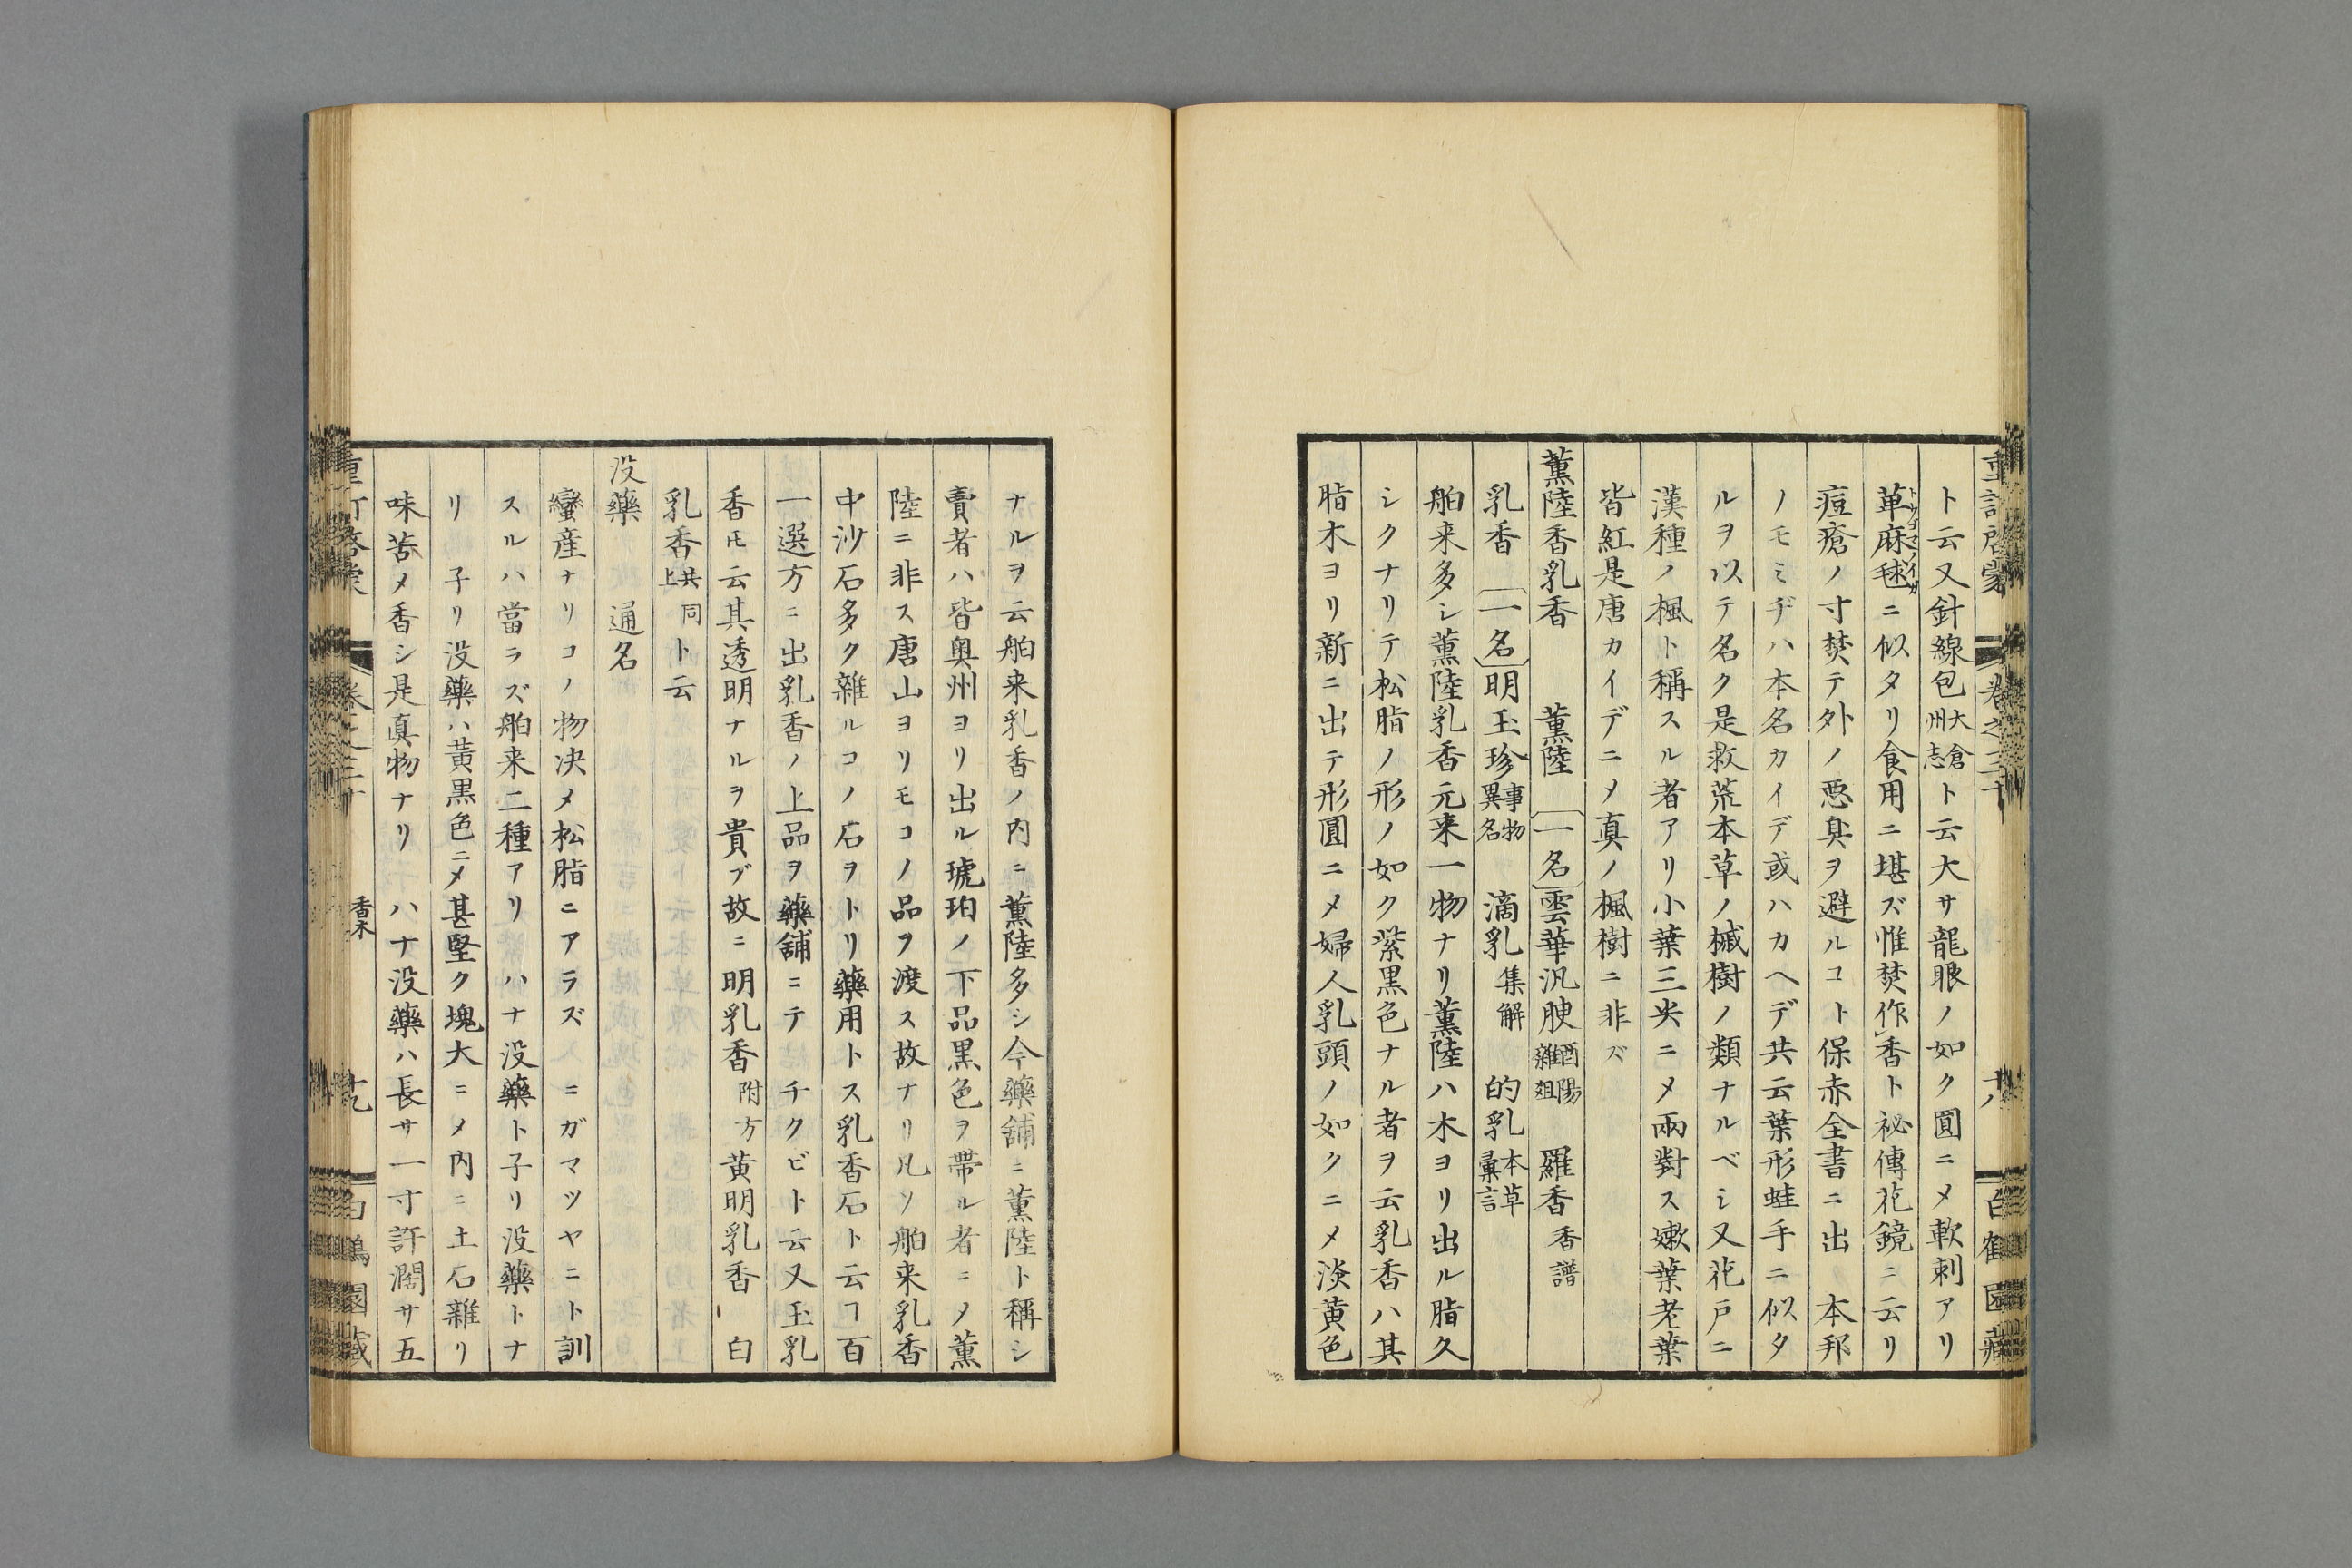 ト云又針線包大倉州志ト云大サ龍眼ノ如ク圓ニメ軟刺アリ
萆麻毬ニ似タリ食用ニ堪ズ惟焚作香ト祕傳花鏡ニ云リ
痘瘡ノ寸焚テ外ノ悪臭ヲ避ルコト保赤全書ニ出 本邦
ノモミヂハ本名カイデ或ハカヘデ共云葉形蛙手ニ似タ
ルヲ以テ名ク是救荒本草ノ槭樹ノ類ナルベシ又花戸ニ
漢種ノ楓ト稱スル者アリ小葉三尖ニメ兩對ス嫩葉老葉
皆紅是唐カイデニメ真ノ楓樹ニ非ズ
薫陸香乳香 薫陸 一名 雲華汎腴酉陽雜俎 羅香香譜
乳香 一名 明玉珍事物異名 滴乳集解 的乳本草彙言
舶来多シ薫陸乳香元来一物ナリ薫陸ハ木ヨリ出ル脂久
シクナリテ松脂ノ形ノ如ク紫黒色ナル者ヲ云乳香ハ其
脂木ヨリ新ニ出テ形圓ニメ婦人乳頭ノ如クニメ淡黄色
ナルヲ云舶来乳香ノ内ニ薫陸多シ今藥舗ニ薫陸ト稱シ
賣者ハ皆奥州ヨリ出ル琥珀ノ下品黒色ヲ帶ル者ニメ薫
陸ニ非ス唐山ヨリモコノ品ヲ渡ス故ナリ凡ソ舶来乳香
中沙石多ク雜ルコノ石ヲトリ藥用トス乳香石ト云ヿ百
一選方ニ出乳香ノ上品ヲ藥舗ニテ チクビト云又玉乳
香𪜈云其透明ナルヲ貴ブ故ニ明乳香附方黄明乳香 白
乳香共上同ト云
没藥 通名
蠻産ナリコノ物决メ松脂ニアラズ ニガマツヤニト訓
スルハ當ラズ舶来二種アリ ハナ没藥ト子リ没藥トナ
リ 子リ没藥ハ黄黒色ニメ甚堅ク塊大ニメ内ニ土石雜リ
味苦メ香シ是真物ナリ ハナ没藥ハ長サ一寸許濶サ五
香木
十九